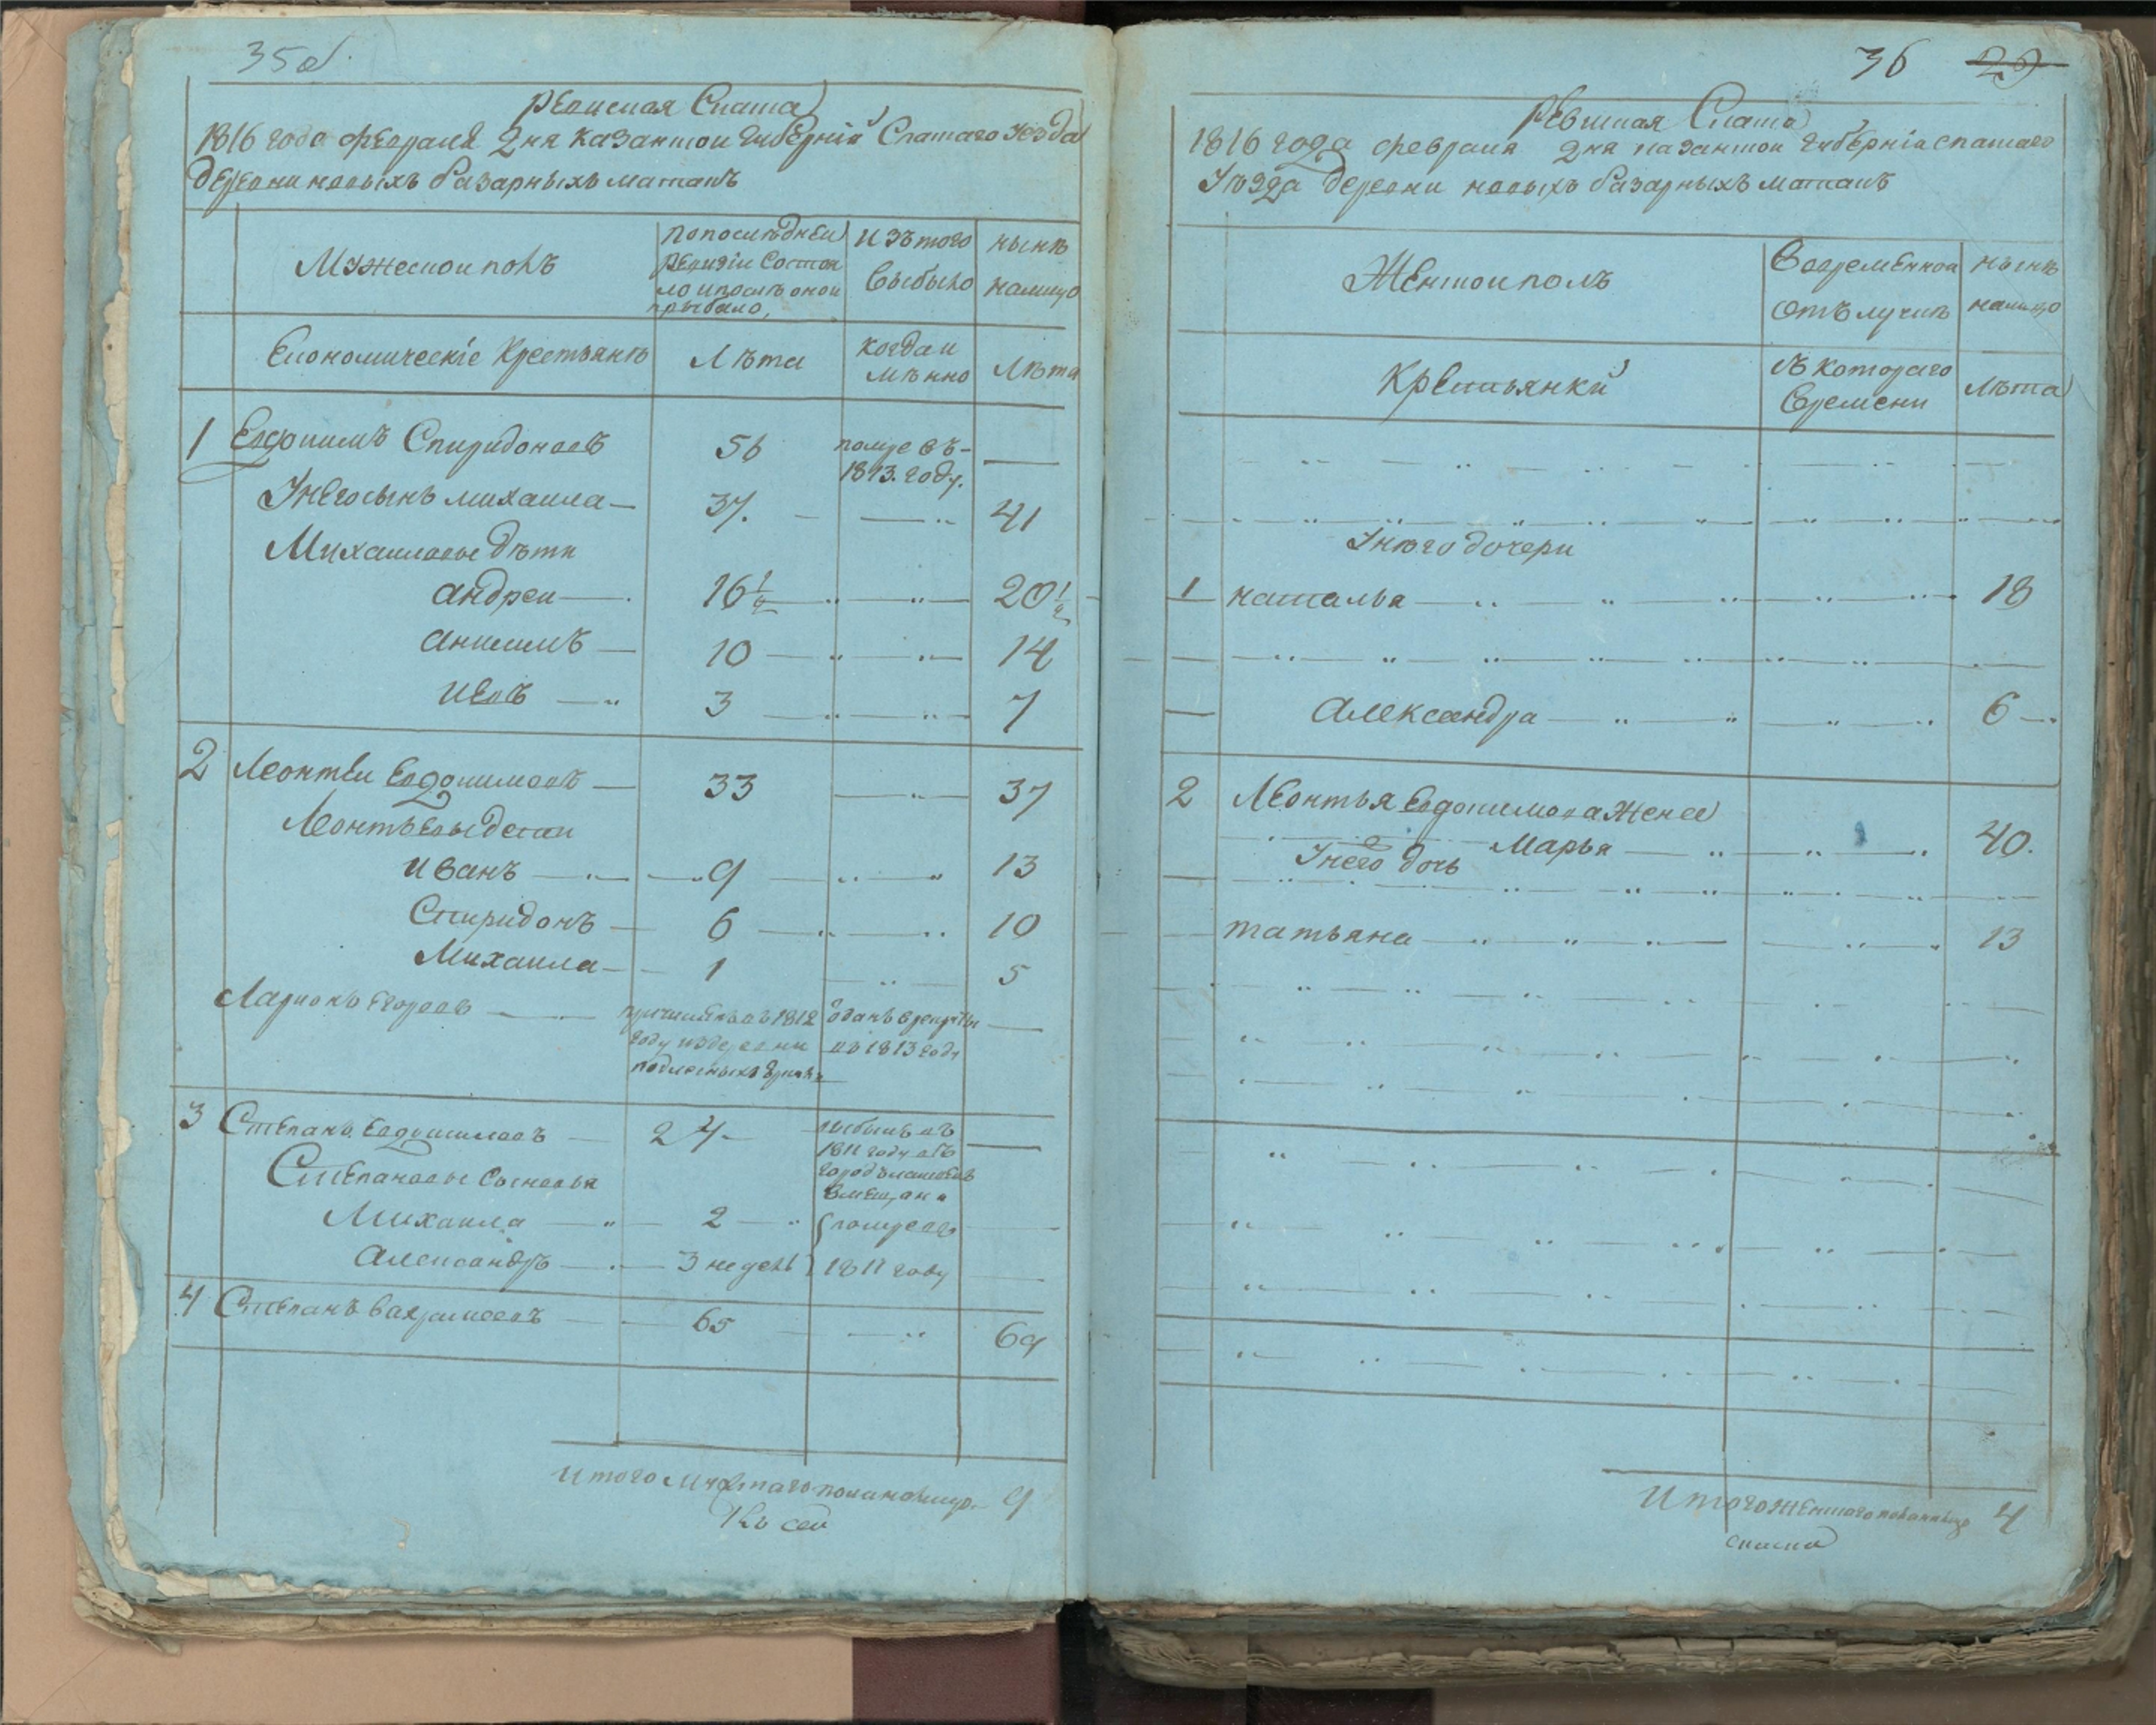 35об.
Ревиская Скаска
1816 года февраля 2 дня Казанской губерній Спаскаго уезда
деревни новыхъ базарныхъ матакъ
Мужескои полъ
попоследнеи
ревизіи состоя
ло ипосле онои
прибыло,
изътого
выбыло
нынѣ
налицо
Економическіе крестьянѣ
Лѣта
когда и
мѣнно
Лѣта
1 Евдокимъ Спиридоновъ 56 помре въ
1813. году.
Унегосынъ михаила 37. 41
Михаиловы дѣти
андреи 16 1/2 20 1/2
анисимъ 10 14
иевъ 3 7
2 Леонтеи Евдокимовъ 33 37
Леонтьевы дети
иванъ 9 13
Спиридонъ 6 10
Михаила 1 5
Ларионъ Егоровъ причисленъ въ 1812
году из деревни
отданъ врекруты
въ 1813 году
3 Степанъ Евдокимовъ 24 выбылъ въ
1811 году въ
город
вмещани
Степановы сыновья
Михаила 2 помре въ
Александръ 3 недель 1811 году
4 Степанъ Вахрамеевъ 65 69
Итого мужескаго пола налицо 9
Къ сеи
36 29
Ревиская Скаска
1816 года февраля 2 дня казанскои губерніи спаскаго
Уѣзда деревни новыхъ базарныхъ матакъ
Женскои полъ
Вовременнои
отълучкѣ
нынѣ
налицо
Крестьянки
съ котораго
времени
лѣта
Унѣго дочери
1 наталья 18
Александра 6
2 Леонтья Евдокимова жена
Марья 40.
Унего дочь
татьяна 13
Итого женскаго пола налицо 4
скаски